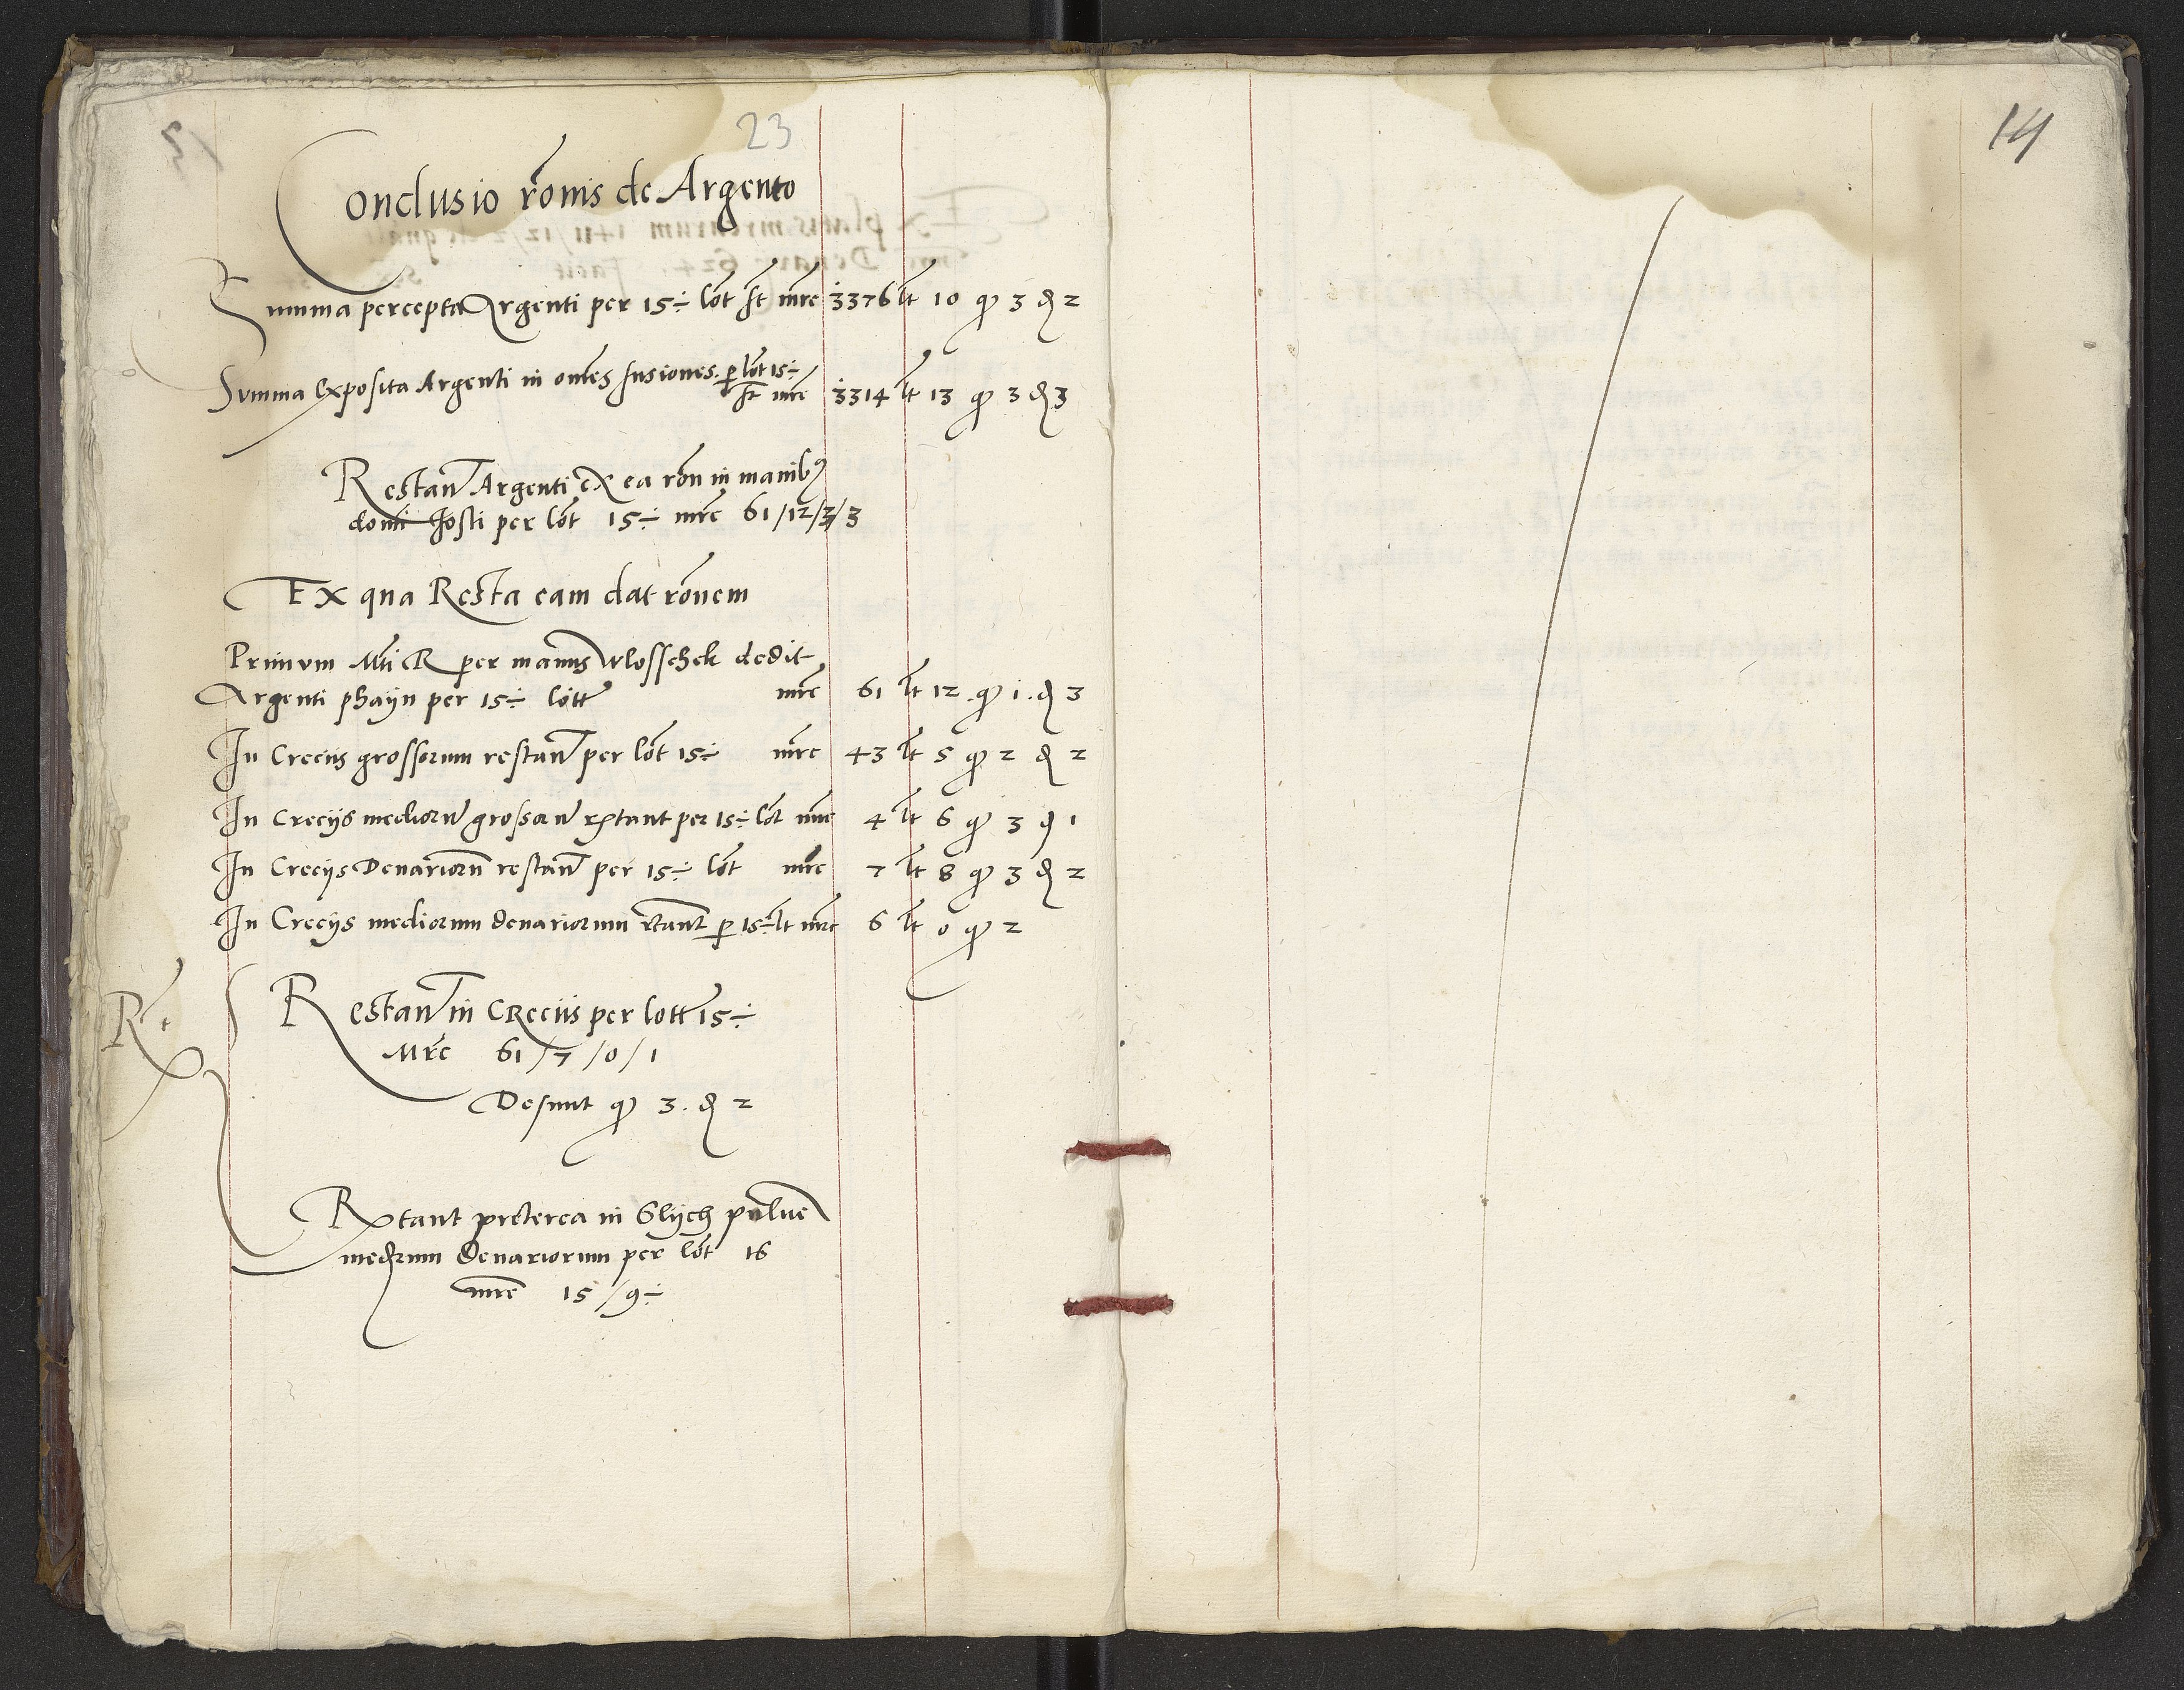 23
Conclusio rōnis de Argento
Summa percepta Argenti per 15÷ lōt ft mrc 3376 lt 10 qͬ 3 ₰ 2
Summa Exposita Argenti in omēs fusiones. per lōt 15÷
ft mrc 3314 lt 13 qͬ 3 ₰ 3
Restant Argenti ex ea rōn in manibꝰ
domi Josti per lōt 15÷ mrc 61/12/3/3
Ex qua Resta eam dat rōnem
Primum Mti R per manus Wlosschek dedit
Argenti phayn per 15÷ lott mrc 61 lt 12 qͬ 1 ₰ 3
In Creciis grossorum restant per lōt 15÷ mrc 43 lt 5 qͬ 2 ₰ 2
In Crecys mediorū grossorū rxtant per 15÷ lōt mrc 4 lt 6 qͬ 3 ₰ 1
In Crecys Denariorū restant per 15÷ lōt mrc 7 lt 8 qͬ 3 ₰ 2
In Crecys mediorum denariorum rtant per 15÷ lt mrc 6 lt 0 qͬ 2
Restant in Creciis per lott 15÷
Mrc 61/7/0/1
Desunt qͬ 3. ₰ 2
Rxtant preterea in Slych pulue
medrum denariorum per lōt 16
mrc 15/9÷
14